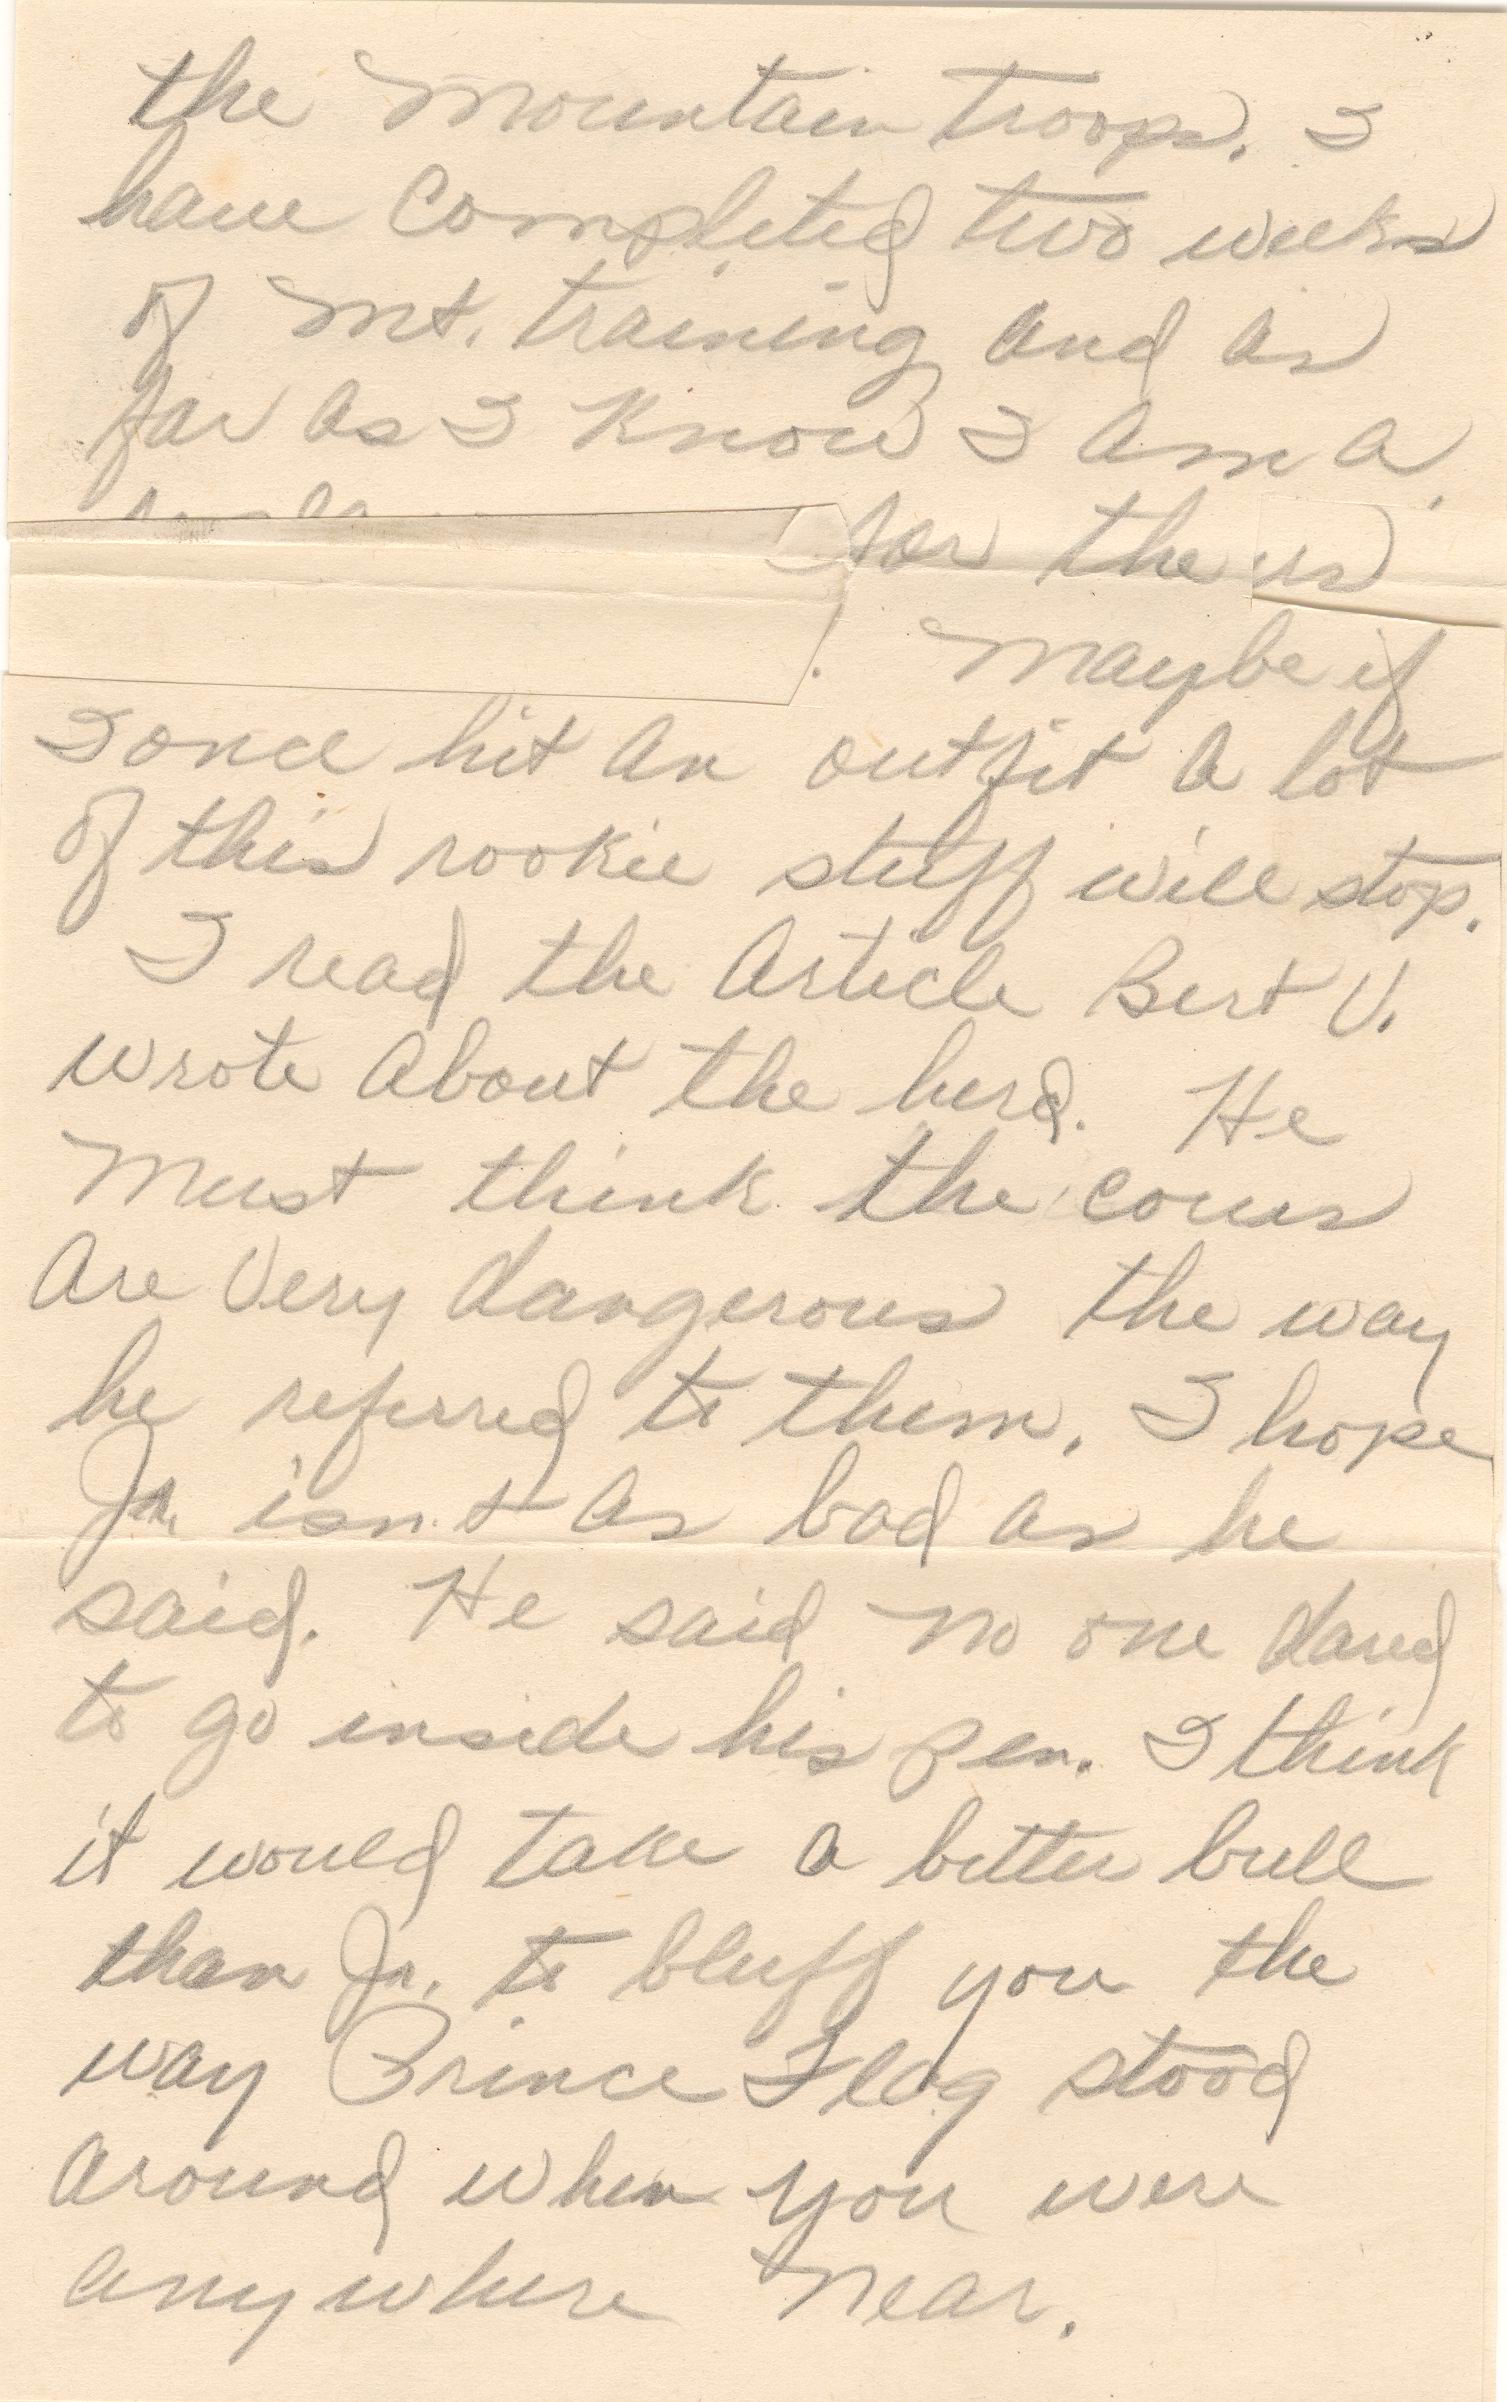 the Mountain troops. I
have Completed two weeks
of Mt. training and as
far as I Know I am a
for the
. Maybe if
I once hit an outfit a lot
of this rookie stuff will stop.
I read the Article Bert V.
wrote About the herd. He
Must think the cows
Are Very dangerous the way
he referred to them. I hope
Jr. isn't As bad as he
said. He said no one dared
to go inside his pen. I think
it would take a better bull
than Jr. to bluff you the
way Prince Flag stood
Around when you were
Anywhere Near.